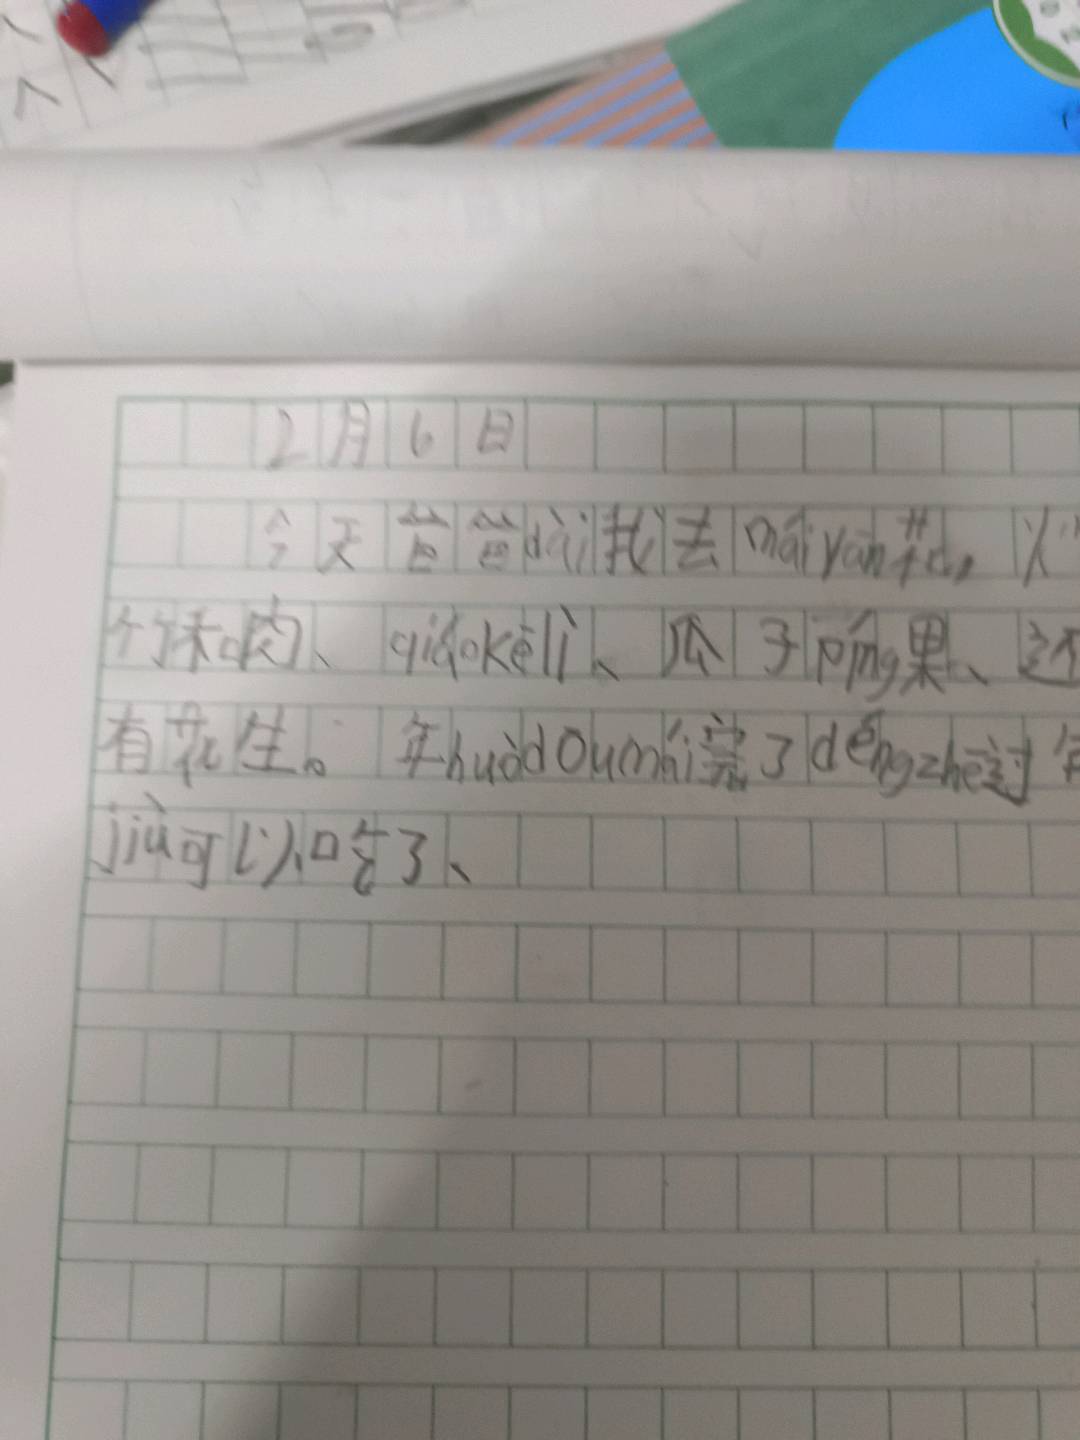 2月6日
今天爸爸dài我去mǎiyān花,
肉、qiǎokèlì、瓜子píng果、还
有花生。年huòdōumǎi完了děngzhe过年
jiù可以吃了、